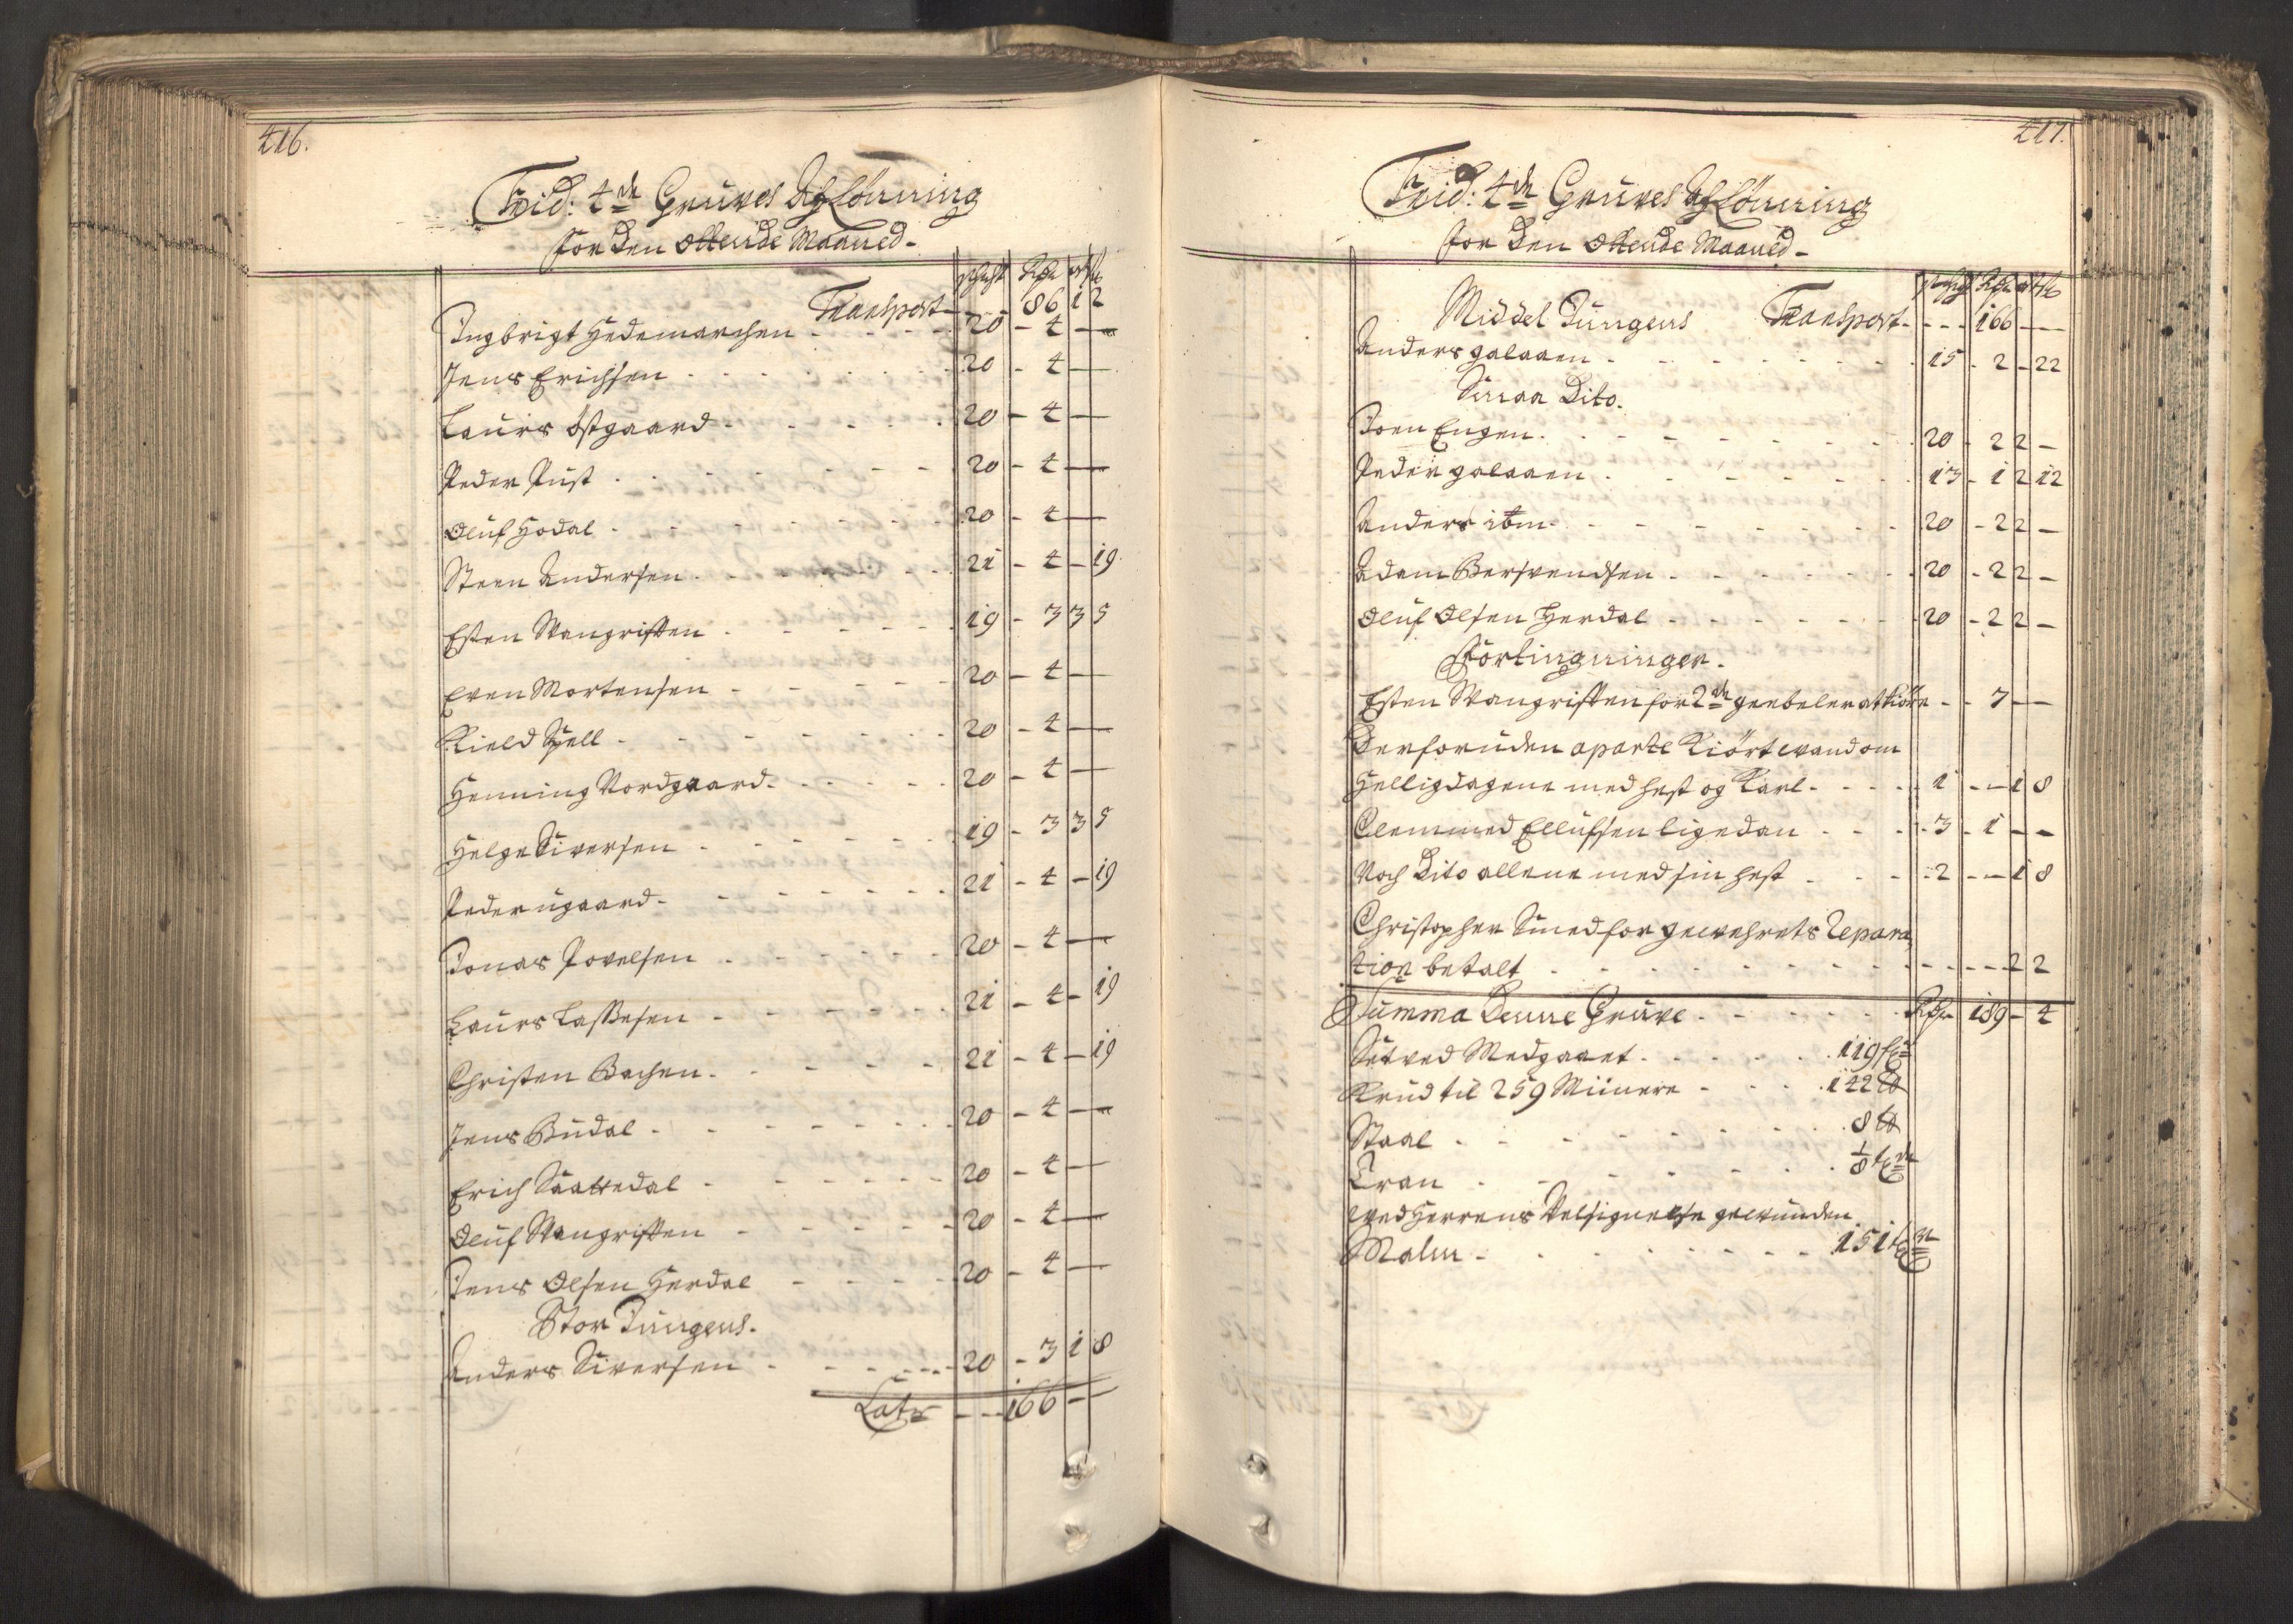 416.
Frid: 4de Gruves Aflönning
for den ottende Maaned-
Schicht Rdr ort ß
Transport - - 86 1 2
Ingbrigt Hedemarchen - - - - 20 - 4 -
Jens Erichsen - - - - 20 - 4 -
Laurs Østgaard - - - - 20 - 4 -
Peder Rust - - - - 20 - 4 -
Oluf Hodal - - - - 20 - 4 -
Steen Andersen - - - - 21 - 4 - 19
Esten Wangristen - - - - 19 - 3 3 5
Even Mortensen - - - - 20 - 4 -
Kield Spell - - - - 20 - 4 -
Henning Nordgaard - - - - 20 - 4 -
Helge Siversen - - - - 19 - 3 3 5
Peder ugaard - - - - 21 - 4 - 19
Jonas Povelsen - - - - 20 - 4 -
Laurs Lassesen - - - - 21 - 4 - 19
Christen Bachen - - - - 21 - 4 - 19
Jens Budal - - - - 20 - 4 -
Erich Saattedal - - - - 20 - 4 -
Oluf Wangristen - - - - 20 - 4 -
Jens Olsen Herdal - - - - 20 - 4 -
Stor Jungens.
Anders Siversen - - - - 20 - 3 1 8
Lats - - 166 -
417.
Frid: 4de Gruves Aflönning
for den ottende Maaned-
Schicht Rdr ort ß
Middel Jungens Transport - - - 166 -
Anders galaaen - - - - 15 - 2 - 22
Smaa Dito.
Joen Engen - - - - 20 - 2 2 -
Peder galaaen - - - - 13 - 1 2 12
Anders ibm - - - - 20 - 2 2 -
Adam Bersvendsen - - - - 20 - 2 2 -
Oluf Olsen Herdal - - - - 20 - 2 2 -
Fortingninger.
Esten Wangristen for 2de geebeler at kiöre - - 7 -
Derforuden aparte Kiört vand om
Helligdagene med hest og Karl - - - - 1 - - 1 8
Clemmed Ellufsen ligedan - - - 3 - 1 - -
Noch Dito allene med sin hest - - - 2 - - 1 8
Christopher Smed for gewehrets Repara
tion betalt - - - - 2 2
Summa Denne Gruve - - - - Rdr 189 - 4
Sætved Medgaaet - - - - 119
Krud til 259 Miinere - - - 142 ℔
Staal - - - - 8 ℔
Tran - - - - 1/8
ved Herrens Velsignelse gevunden
Malm - - - - 151